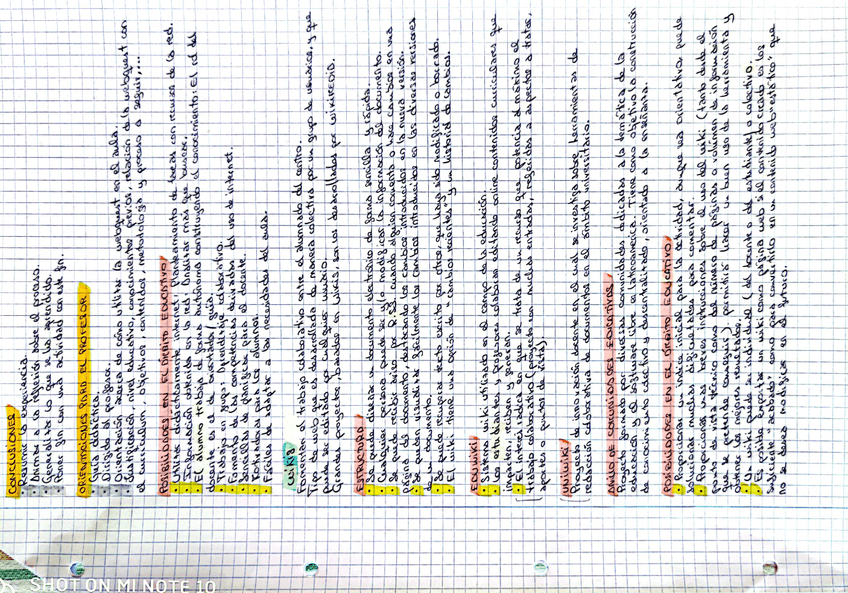 CONCLUSIONES
Resumir la experiencia.
Animar a la reflexión sobre el proceso.
Generalizar lo que se ha aprendido.
Poner fin con una actividad con este fin.
ORIENTACIONES PARA EL PROFESOR
Guía didáctica.
Dirigida al profesor.
Orientación acerca de cómo utilizar la webquest en el aula.
Justificación, nivel educativo, conocimientos previos, relación de la webquest con
el currículum, objetivos, contenidos, metodología y proceso a seguir,...
POSIBILIDADES EN EL ÁMBITO EDUCATIVO
Utilizar didácticamente internet: Planteamiento de tareas con recursos de la red.
Información obtenida en la red: Analizar más que buscar.
El alumno trabaja de forma autónoma construyendo el conocimiento: El rol del
docente es el de ambientador y guía.
Trabajo en grupo: Aprendizaje colaborativo.
Fomento de las competencias derivadas del uso de internet.
Sencillas de planificar para el docente.
Motivadoras para los alumnos.
Fáciles de adaptar a las necesidades del aula.
WIKIS
Fomentan el trabajo colaborativo entre el alumnado del centro.
Tipo de web que es desarrollada de manera colectiva por un grupo de usuarios, y que
puede ser editada por cualquier usuario.
Grandes proyectos, basados en wikis, son los desarrollados por WIKIPEDIA.
ESTRUCTURA
Se puede diseñar un documento electrónico de forma sencilla y rápida.
Cualquier persona puede ser y/o modificar la información del documento.
Se puede recibir aviso por RSS cuando alguien comenta o hace cambios en una
página del documento, destacando los cambios introducidos en la nueva versión.
Se pueden visualizar fácilmente los cambios introducidos en las diversas versiones
de un documento.
Se puede recuperar texto escrito por otros, que haya sido modificado o borrado.
El wiki tiene una opción de "cambios recientes" y un historial de cambios.
EDUWIKI
Sistema wiki utilizado en el campo de la educación.
Los estudiantes y profesores colaboran editando online contenidos curriculares que
imparten, reciben y generan.
El interés radica en que se trata de un recurso que potencia al máximo el
trabajo colaborativo (proyecto con muchas entradas, referidas a aspectos a tratar,
aportes o puntos de vista).
UNIWIKI
Proyecto de innovación docente en el cual se investiga sobre herramientas de
redacción colaborativa de documentos en el ámbito universitario.
ANILLO DE COMUNIDADES EDUCATIVAS
Proyecto formado por diversas comunidades dedicadas a la temática de la
educación y el software libre en latinoamérica. Tiene como objetivo la construcción
de conocimiento colectivo y descentralizado, orientado a la enseñanza.
POSIBILIDADES EN EL ÁMBITO EDUCATIVO
Proporcionar un índice inicial para la actividad, aunque sea orientativo, puede
solucionar muchas dificultades para comenzar.
Proporcionar breves instrucciones sobre el uso del wiki (tanto desde el
punto de vista técnico como del número de páginas o volumen de información
que se pretende conseguir), permitirá hacer un buen uso de la herramienta y
obtener los mejores resultados.
Un wiki puede ser individual (del docente o de estudiante) o colectivo.
Es posible exportar un wiki como página web si el contenido creado es los
suficiente "acabado" como para convertirlo en un contenido web "estático" que
no se desea modificar en el futuro.
SHOT ON MI NOTE 10